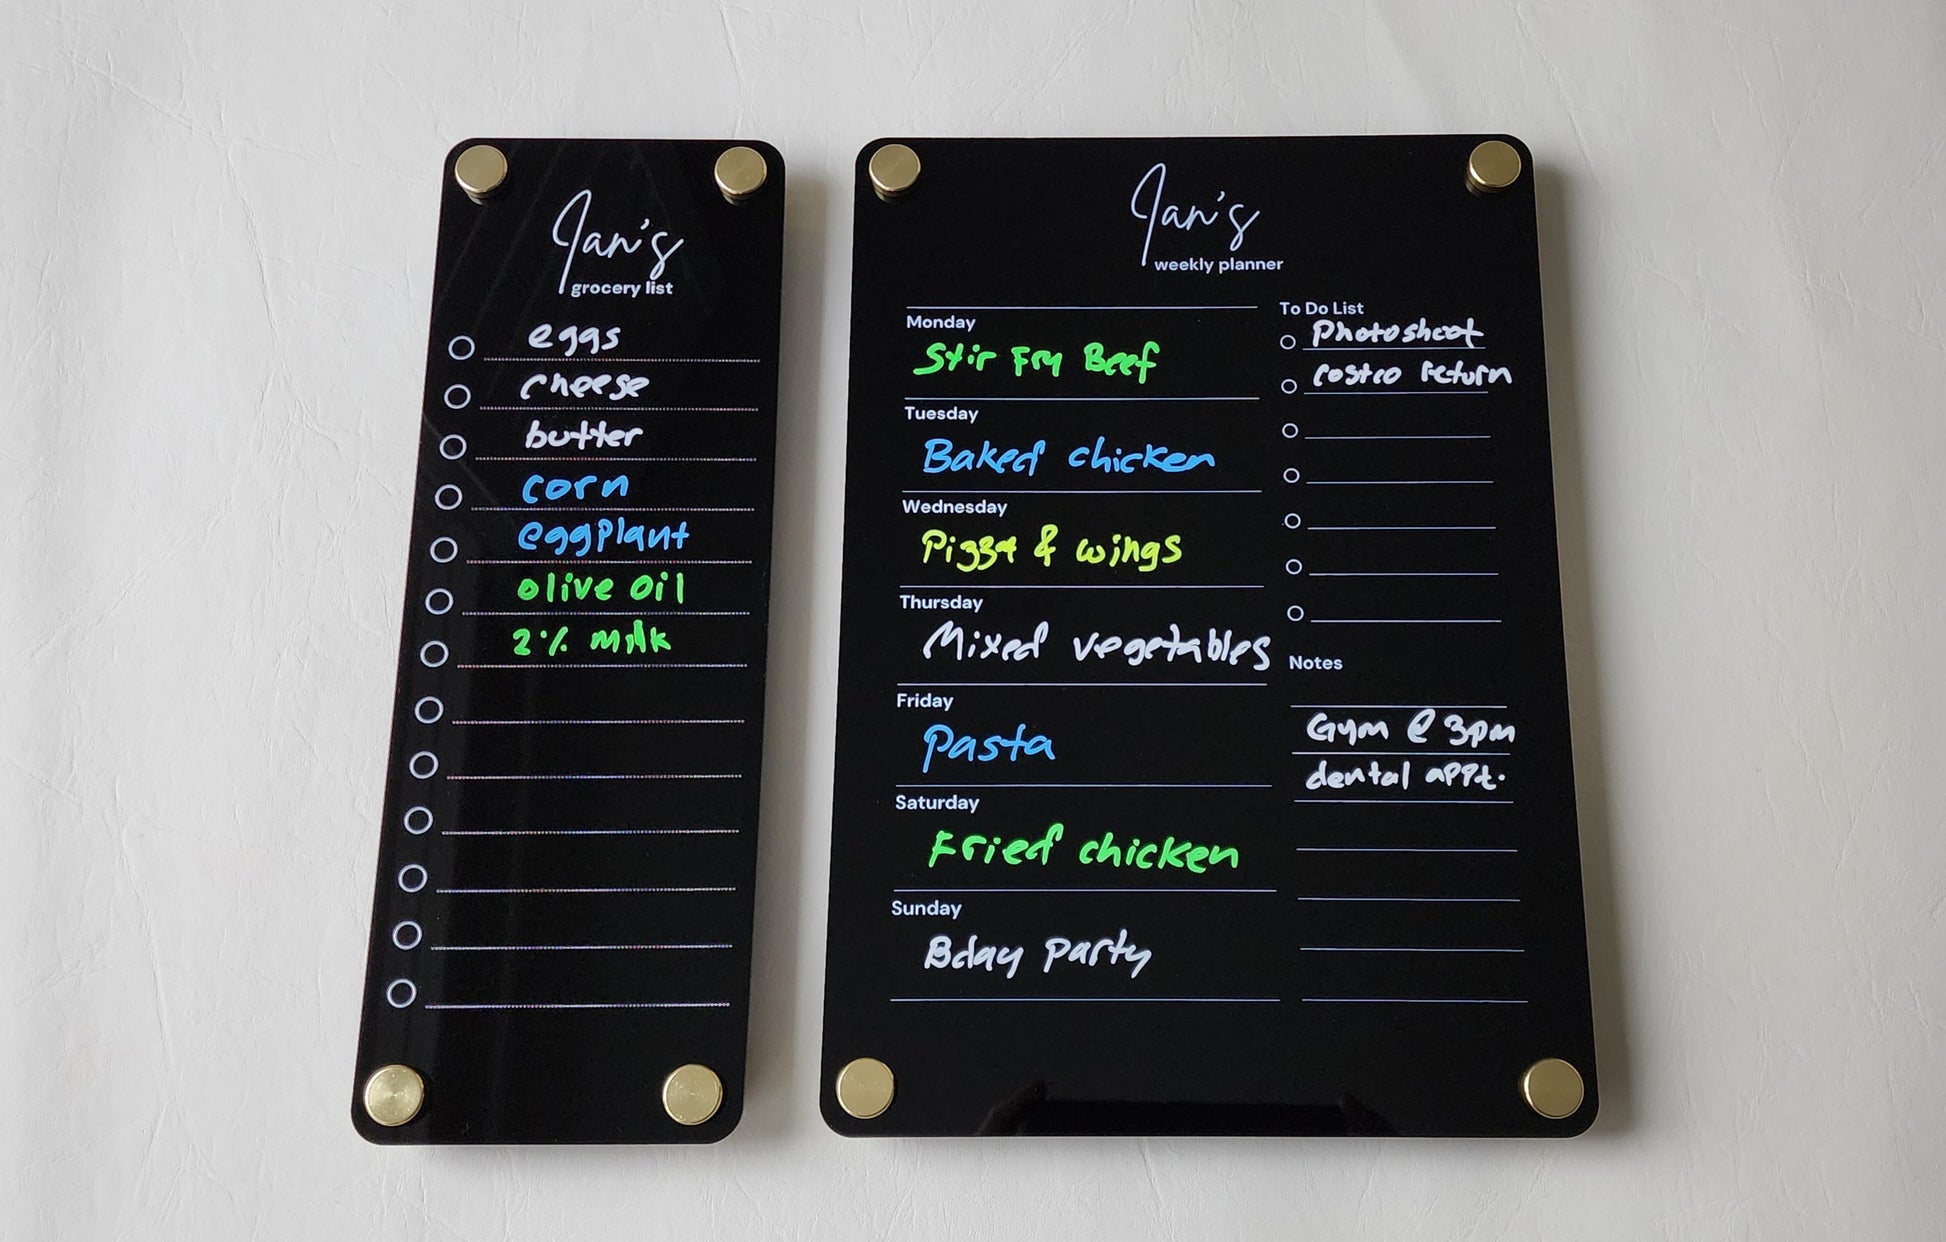 Jan's
grocery list
eggs
cheese
butter
corn
eggplant
olive oil
2% milk
Jan's
weekly planner
Monday
Stir Fry Beef
Tuesday
Baked chicken
Wednesday
Pizza & wings
Thursday
Mixed vegetables
Friday
Pasta
Saturday
Fried chicken
Sunday
Bday party
To Do List
Photoshoot
costco return
Notes
Gym @ 3pm
dental appt.